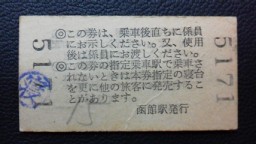 ◎この券は、乗車後直ちに係員
にお示しください。又、使用
後は係員にお渡しください。
◎この券の指定乗車駅で乗車さ
れないときは本券指定の寝台
を更に他の旅客に発売するこ
とがあります。
函館駅発行
5171